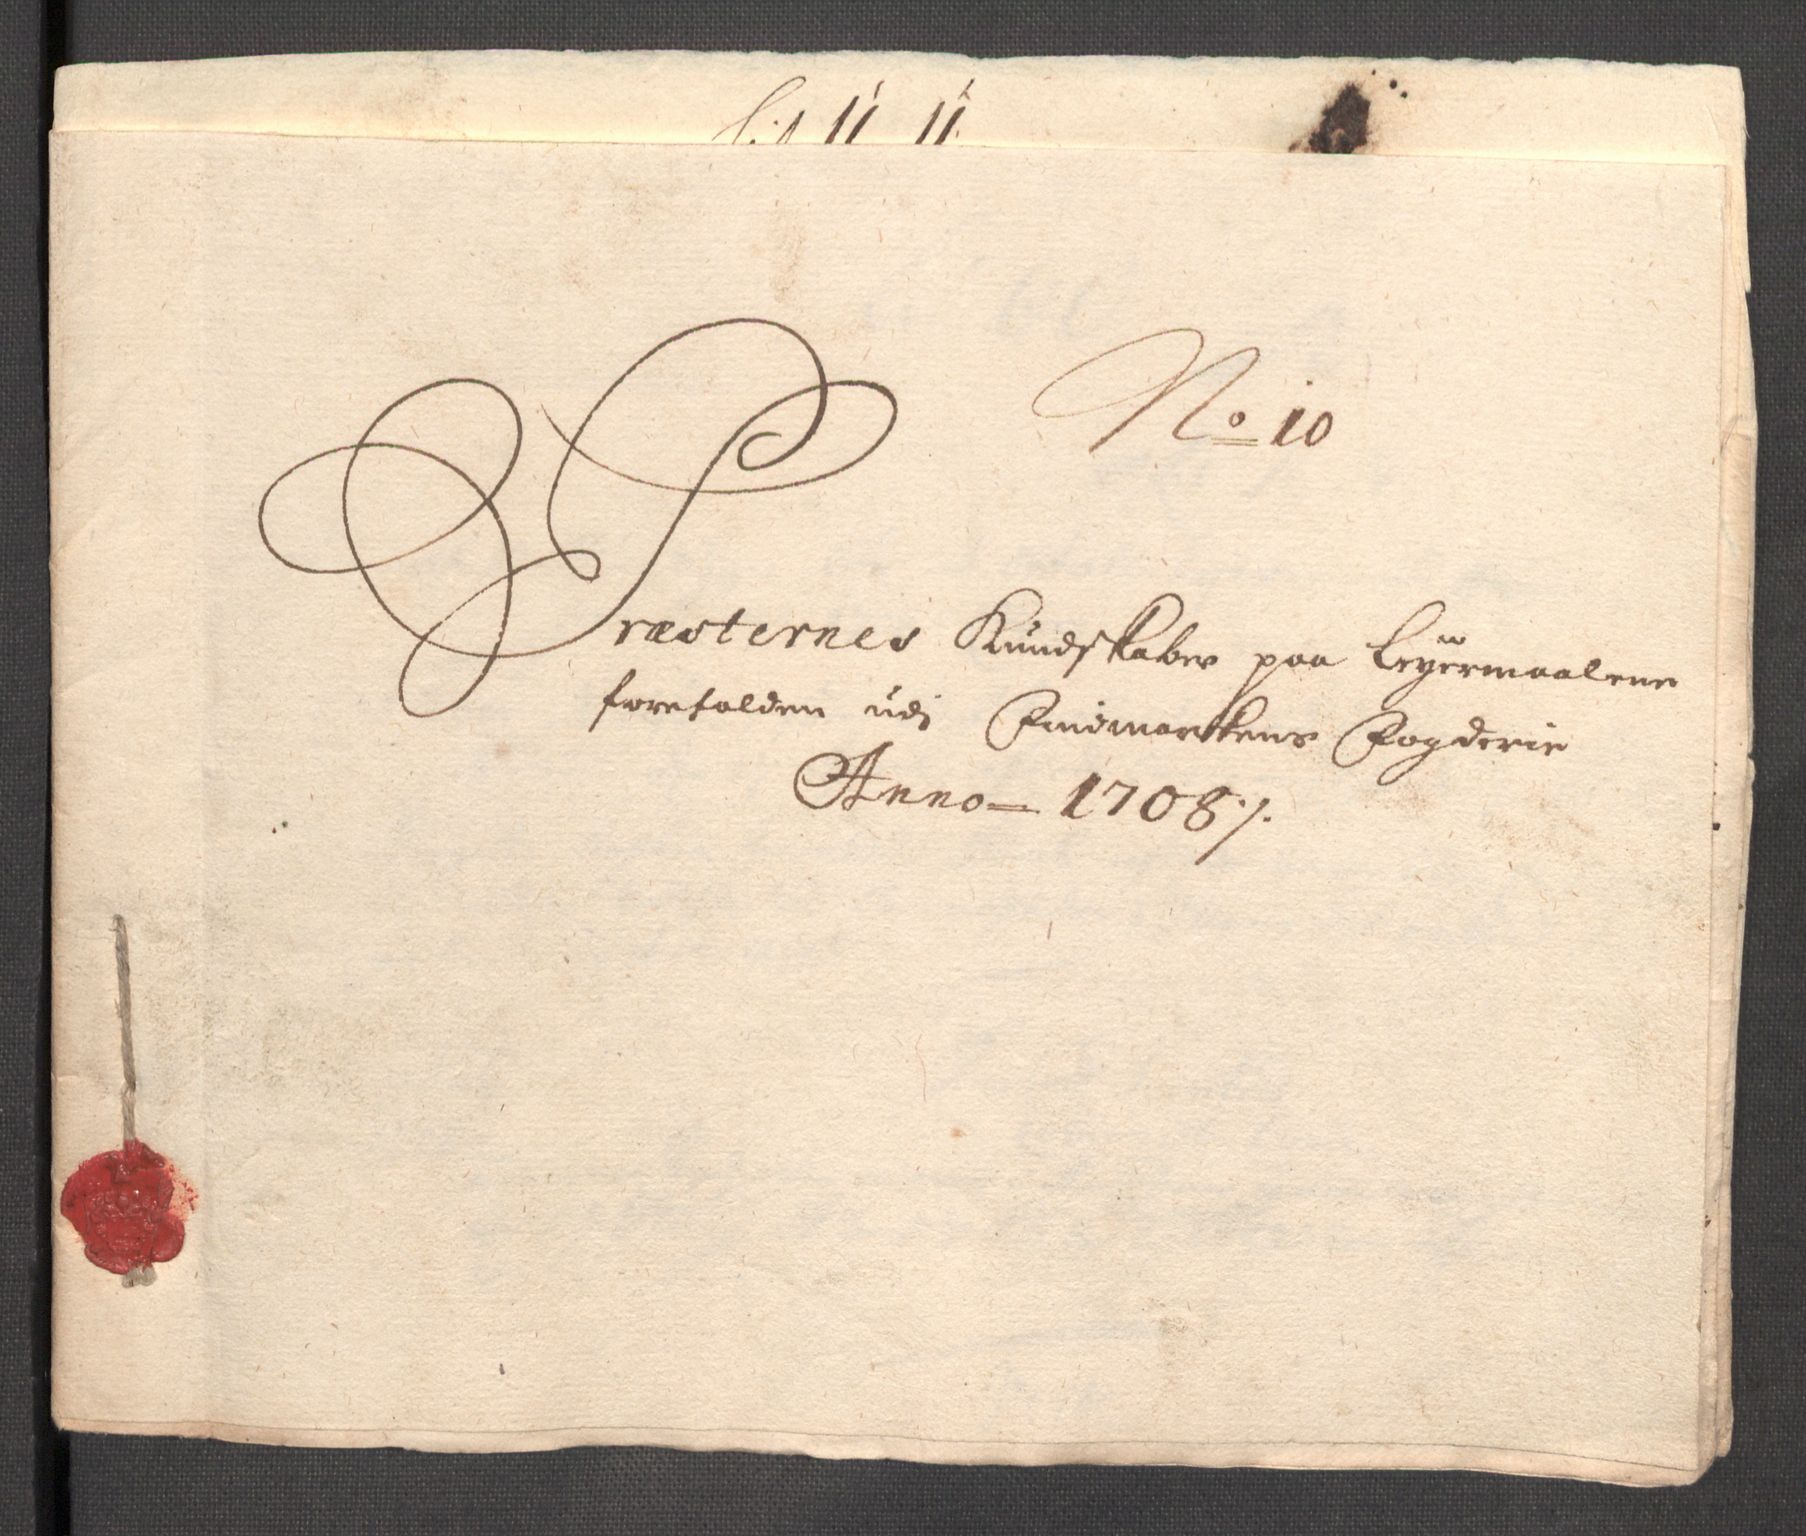 No 10
Præsternes Kundskaber paa Leyermaalene
forefalden udj Findmarkens Fogderie
Anno 1708 /.